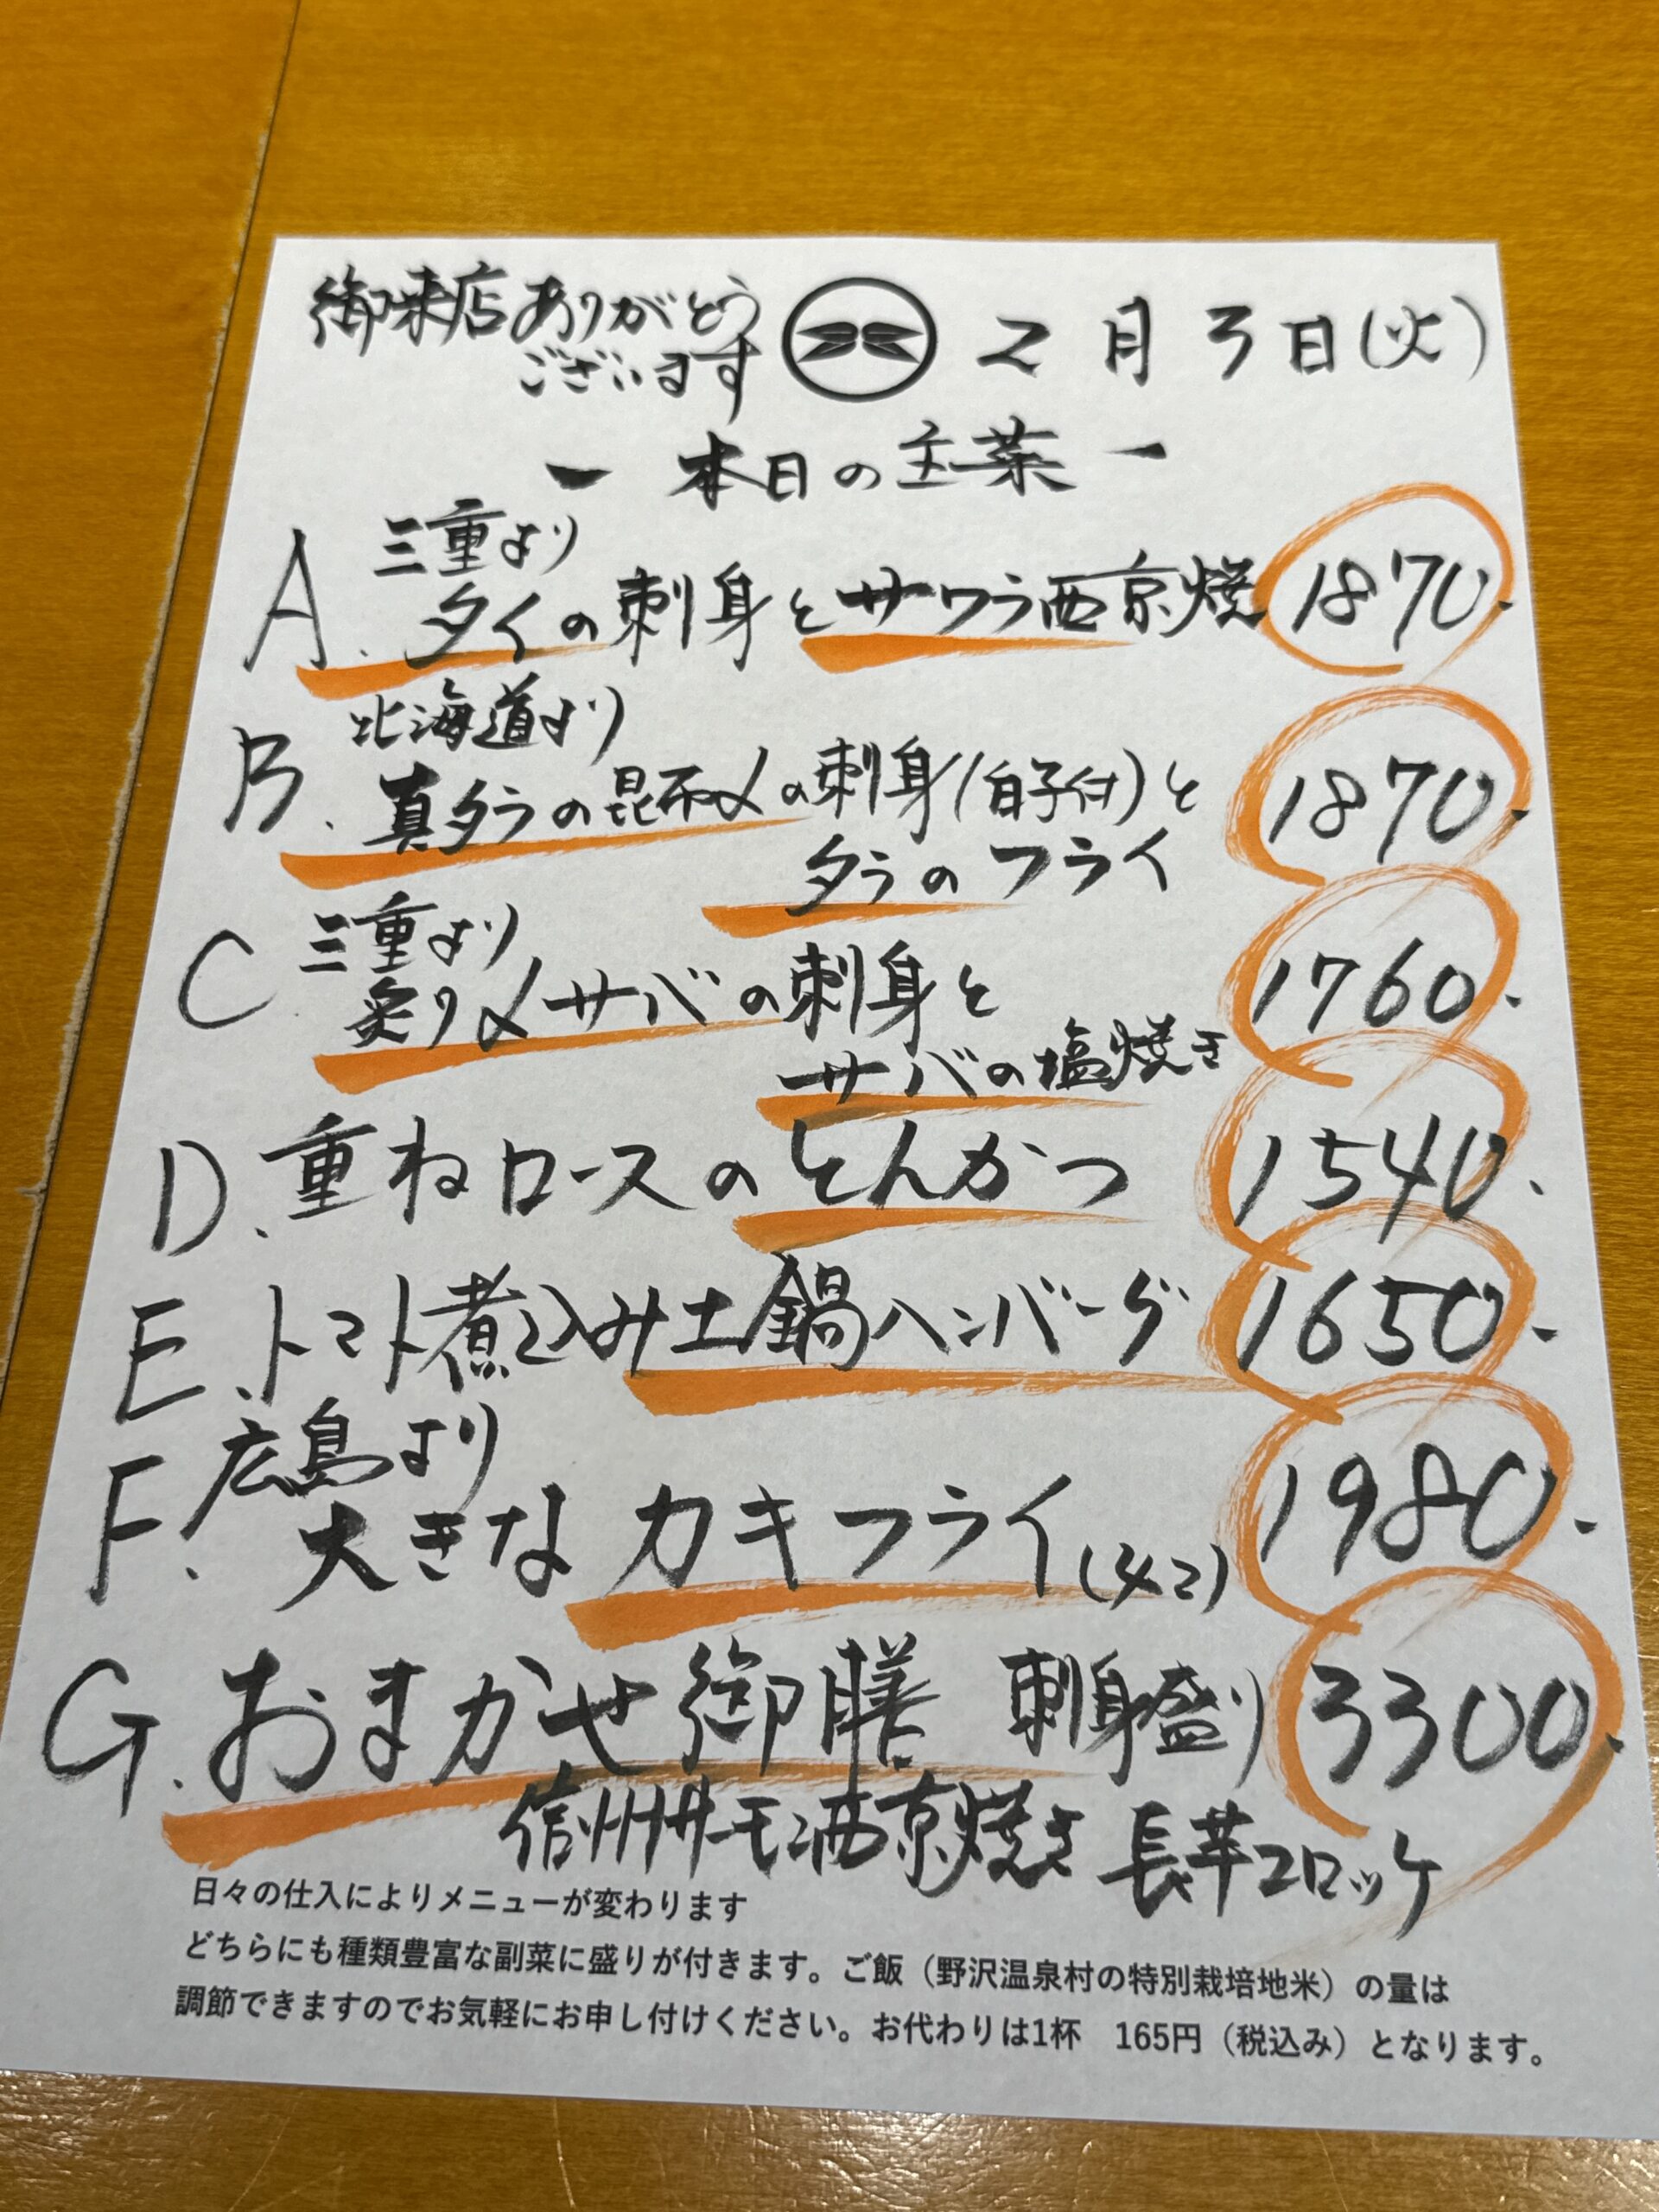 御来店ありがとう
ございます
2月3日(火)
ー本日の主菜ー
A. 三重より
タイの刺身とサワラ西京焼 1870.
B. 北海道より
真タラの昆布〆の刺身(白子付)と 1870.
タラのフライ
C 三重より
炙り〆サバの刺身と 1760.
サバの塩焼き
D. 重ねロースのとんかつ 1540.
E. トマト煮込み土鍋ハンバーグ 1650.
F. 広島より
大きなカキフライ(4コ) 1980.
G. おまかせ御膳 刺身盛り 3300.
信州サーモン西京焼き 長芋コロッケ
日々の仕入によりメニューが変わります
どちらにも種類豊富な副菜に盛りが付きます。ご飯（野沢温泉村の特別栽培地米）の量は
調節できますのでお気軽にお申し付けください。お代わりは1杯　165円（税込み）となります。